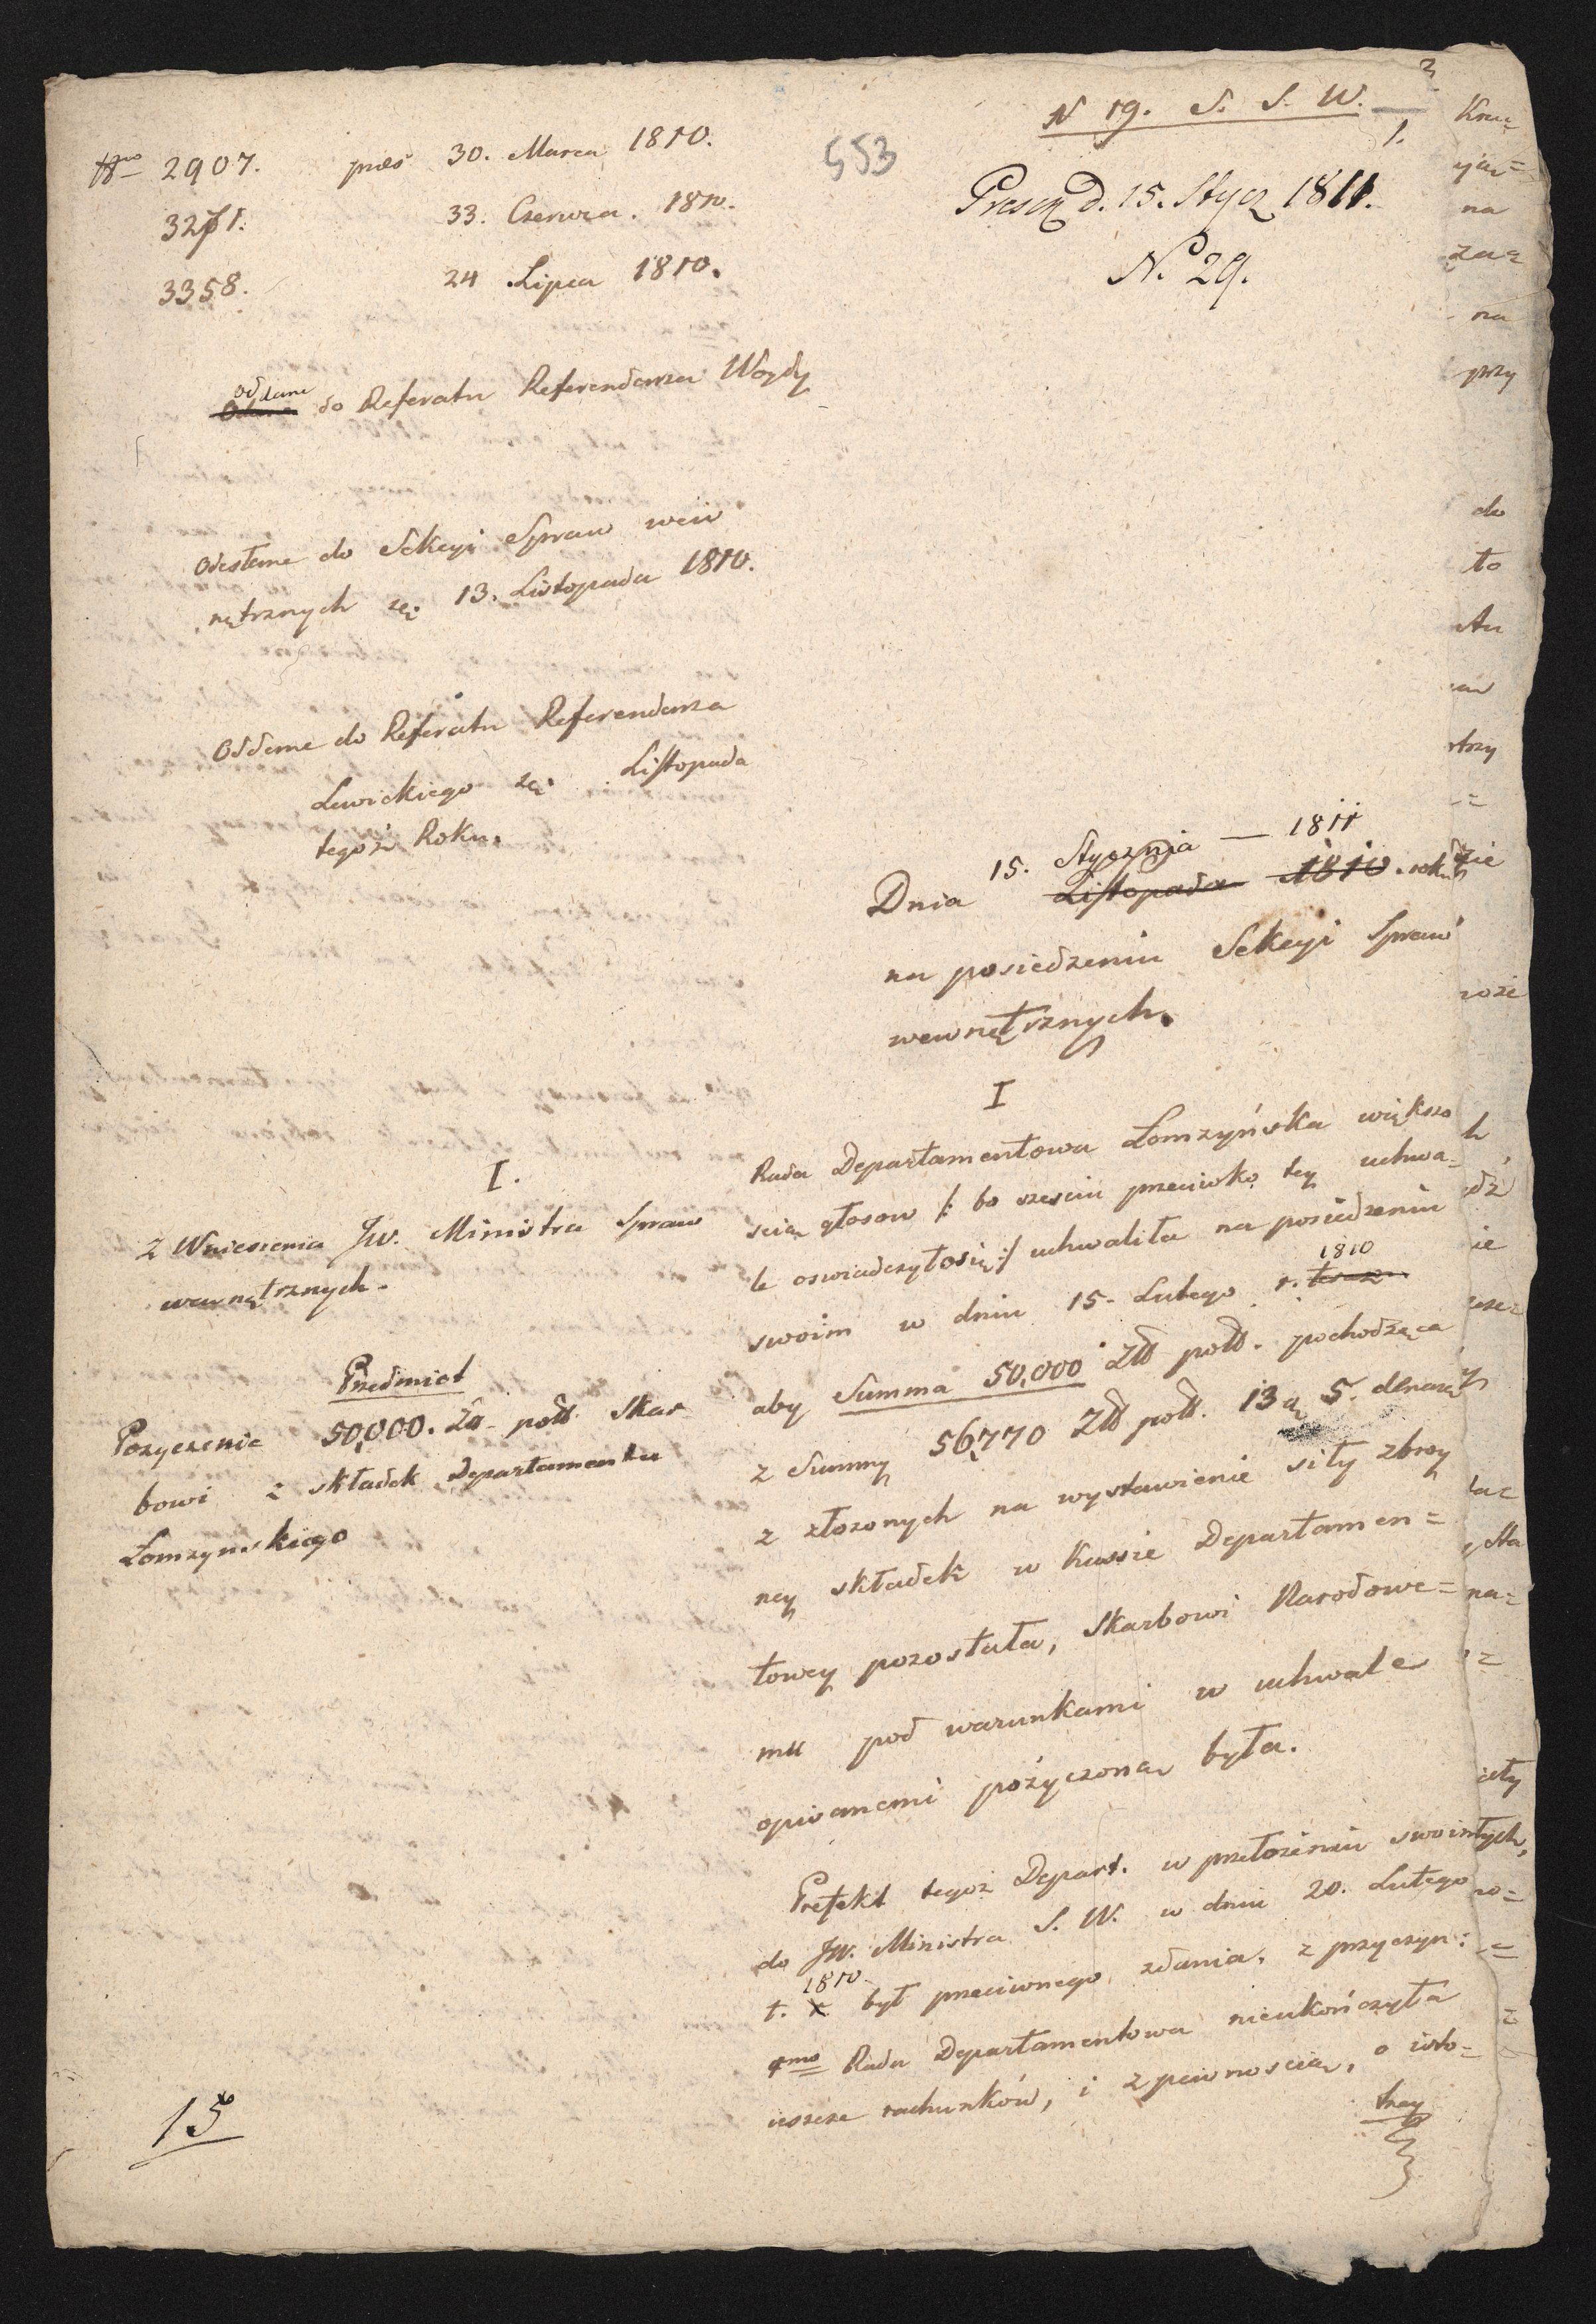 N 19. S. S. W.
1.
Nro 2907. präs 30. Marca 1810.
3271. 33. Czerwca. 1810.
3358. 24 Lipca 1810.
553
Presen d. 15. Stycz 1811.
N. 29.
Oddane do Referatu Referendarza Woydy
Odesłane do Sekcyi Spraw wew
nętrznych 13. Listopada 1810.
Oddane do Referatu Referendarza
Lewickiego Listopada
tegoż Roku.
15. Stycznia — 1811
Dnia Listopada 1810. roku
na posiedzeniu Sekcyi Spraw
wewnętrznych.
I.
Z Wniesienia JW. Ministra Spraw
wewnętrznych.
Przedmiot
Pożyczenie 50,000. Zł. polł. Skar
bowi z składek Departamentu
Łomzynskiego
I
Rada Departamentowa Łomzyńska większo
scią głosow /: bo szesciu przeciwko tey uchwa-
le oswiadczyło się :/ uchwaliła na posiedzeniu
swoim w dniu 15. Lutego r. 1810
aby Summa 50,000 Złł polł. pochodząca
z Summy 56,770 Złł polł. 13 5.
z złozonych na wystawienie siły zbroy
ney składek w Kassie Departamen=
towey pozostała, Skarbowi Narodowe=
mu pod warunkami w uchwale
opisanemi pożyczoną była.
Prefekt tegoz Depart. w przełozeniu swoim
do JW. Ministra S. W. w dniu 20. Lutego
1810
był przeciwnego zdania, z przyczyn:
1mo Rada Departamentowa nieukończyła
ieszcze rachunków, i z pewnoscią, o isto=
tney
15